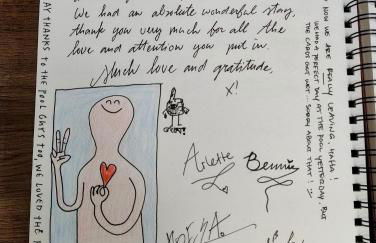 We had an absolute wonderful stay,
thank you very much for all the
love and attention you put in.
Much love and gratitude,
x!
Arlette
Bennie
AY THANKS TO THE POOL GUYS TOO, WE LOVED THE
NOW WE ARE REALLY LEAVING, HAHA!
WE HAD A PERFECT DAY AT THE POOL YESTERDAY, BUT
THE CARDS CAME OUT. SORRY ABOUT THAT! :-)